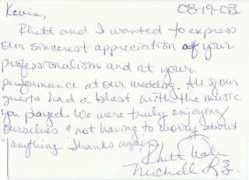 Kevin, 08-19-08
Rhett and I wanted to express
our sincerest appreciation of your
professionalism and at your
performance at our wedding. All your
guests had a blast with the music
you played. We were truly enjoying
ourselves & not having to worry about
anything. Thanks again,
Rhett
Michell